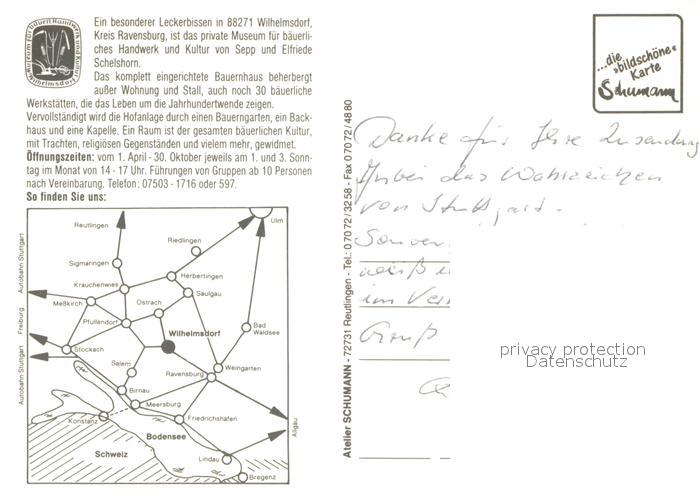 Museum für bäuerl. Handwerk und Kultur Wilhelmsdorf
Ein besonderer Leckerbissen in 88271 Wilhelmsdorf,
Kreis Ravensburg, ist das private Museum für bäuerli-
ches Handwerk und Kultur von Sepp und Elfriede
Schelshorn.
Das komplett eingerichtete Bauernhaus beherbergt
außer Wohnung und Stall, auch noch 30 bäuerliche
Werkstätten, die das Leben um die Jahrhundertwende zeigen.
Vervollständigt wird die Hofanlage durch einen Bauerngarten, ein Back-
haus und eine Kapelle. Ein Raum ist der gesamten bäuerlichen Kultur,
mit Trachten, religiösen Gegenständen und vielem mehr, gewidmet.
Öffnungszeiten: vom 1. April - 30. Oktober jeweils am 1. und 3. Sonn-
tag im Monat von 14 - 17 Uhr. Führungen von Gruppen ab 10 Personen
nach Vereinbarung. Telefon: 07503 - 1716 oder 597.
So finden Sie uns:
Reutlingen
Ulm
Riedlingen
Autobahn Stuttgart
Sigmaringen
Herbertingen
Krauchenwies
Saulgau
Meßkirch
Ostrach
Freiburg
Pfullendorf
Wilhelmsdorf
Bad
Waldsee
Stockach
Autobahn Stuttgart
Salem
Weingarten
Ravensburg
Birnau
Meersburg
Konstanz
Friedrichshafen
Allgäu
Bodensee
Schweiz
Lindau
Bregenz
Atelier SCHUMANN - 72731 Reutlingen - Tel.: 07072/3258 - Fax 07072/4880
...die
»bildschöne«
Karte
Schumann
Danke für Ihre Zusendung
Anbei das Wahrzeichen
von Stuttgart.
weiß
im
Gruß
privacy protection
Datenschutz